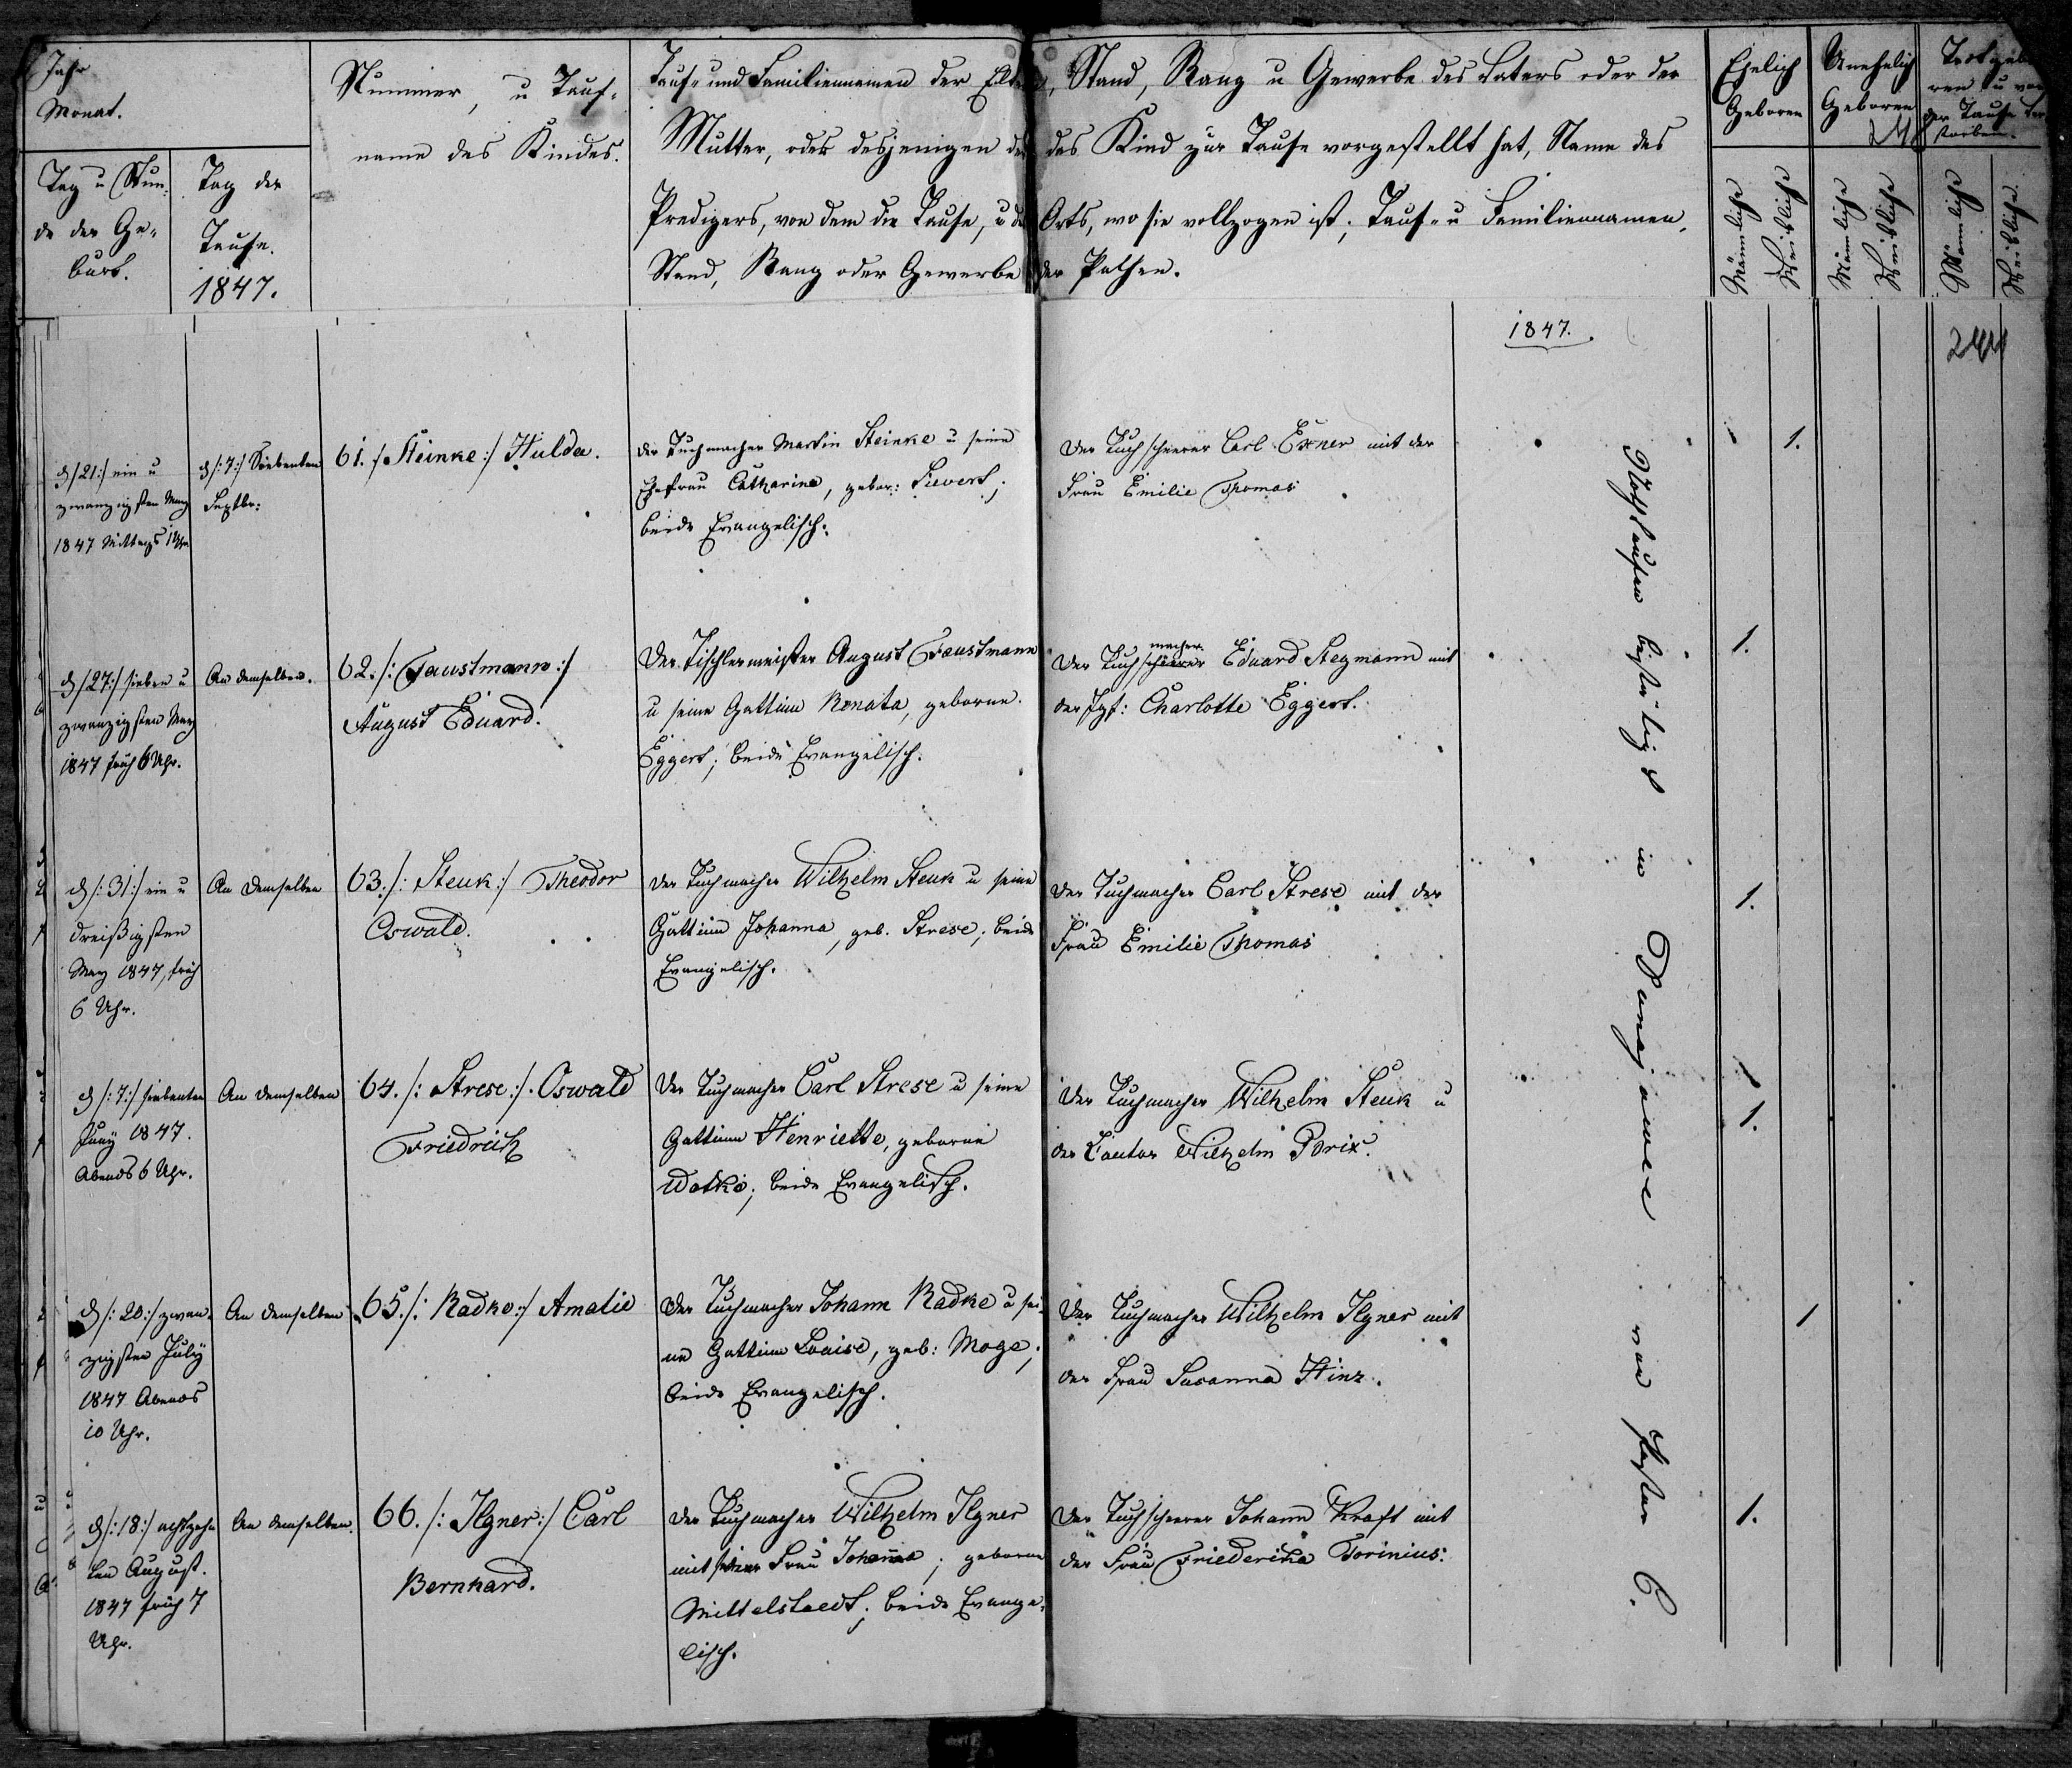 Jahr
Monat.
Tag u Stun-
de der Ge-
burt.
Tag der
Taufe.
1847.
Nummer, u Tauf-
name des Kindes.
Tauf- und Familiennamen der Eltern, Stand, Rang u Gewerbe des Vaters oder der
Mutter, oder desjenigen der das Kind zur Taufe vorgestellt hat, Name des
Predigers, von dem die Taufe, u des Orts, wo sie vollzogen ist; Tauf- u Familiennamen,
Stand, Rang oder Gewerbe der Pathen.
Ehelich
Geboren
Unehelich
Geboren
Todtgebo
ren u vor
der Taufe Ver
storben.
Männliche
Weibliche
Männliche
Weibliche
Männliche
Weibliche
1847.
244
d /21:/ ein u
zwanzigsten May
1847 Mittags 1 Uhr
d /:7:/ Siebenten
Septbr:
61. /Steinke:/ Hulda.
der Tuchmacher Martin Steinke u seine
Ehefrau Catharina, gebor: Sievert;
beide Evangelisch.
Der Tuchscherer Carl Exner mit der
Frau Emilie Thomas
1.
d /27:/ sieben u
zwanzigsten May
1847 früh 6 Uhr.
An demselben.
62. /: Faustmann :/
August Eduard.
Der Tischlermeister August Faustmann
u seine Gattinn Renata, geborne
Eggert; beide Evangelisch.
macher
Der Tuchscherer Eduard Stegmann mit
der Jgf: Charlotte Eggert.
1.
d /:31:/ ein u
dreißigsten
May 1847, früh
6 Uhr.
An demselben
63. /: Steuk :/ Theodor
Oswald.
Der Tuchmacher Wilhelm Steuk u seine
Gattinn Johanna, geb. Strese; beide
Evangelisch.
Der Tuchmacher Carl Strese mit der
Frau Emilie Thomas
1.
d /:7:/ siebenten
Juny 1847.
Abends 6 Uhr.
An demselben
64. /: Strese :/ Oswald
Friedrich
Der Tuchmacher Carl Strese u seine
Gattinn Henriette, geborne
Watke; beide Evangelisch.
Der Tuchmacher Wilhelm Steuk u
der Cantor Wilhelm Brix.
1.
d /:20:/ zwan-
zigsten July
1847 Abends
10 Uhr.
An demselben
65. /: Radke :/ Amalie
Der Tuchmacher Johann Radke u sei-
ne Gattinn Louise, geb: Moge;
beide Evangelisch.
Der Tuchmacher Wilhelm Ilgner mit
der Frau Susanna Hinz.
1
d /:18:/ achtzehn
ten August.
1847 früh 7
Uhr.
An demselben.
66. /: Ilgner :/ Carl
Bernhard.
Der Tuchmacher Wilhelm Ilgner
mit seiner Frau Johanna; geborne
Mittelstaedt; beide Evange-
lisch.
Der Tuchscherer Johann Kraft mit
der Frau Friederika Torinius.
1.
Nothtaufen bestätigt in